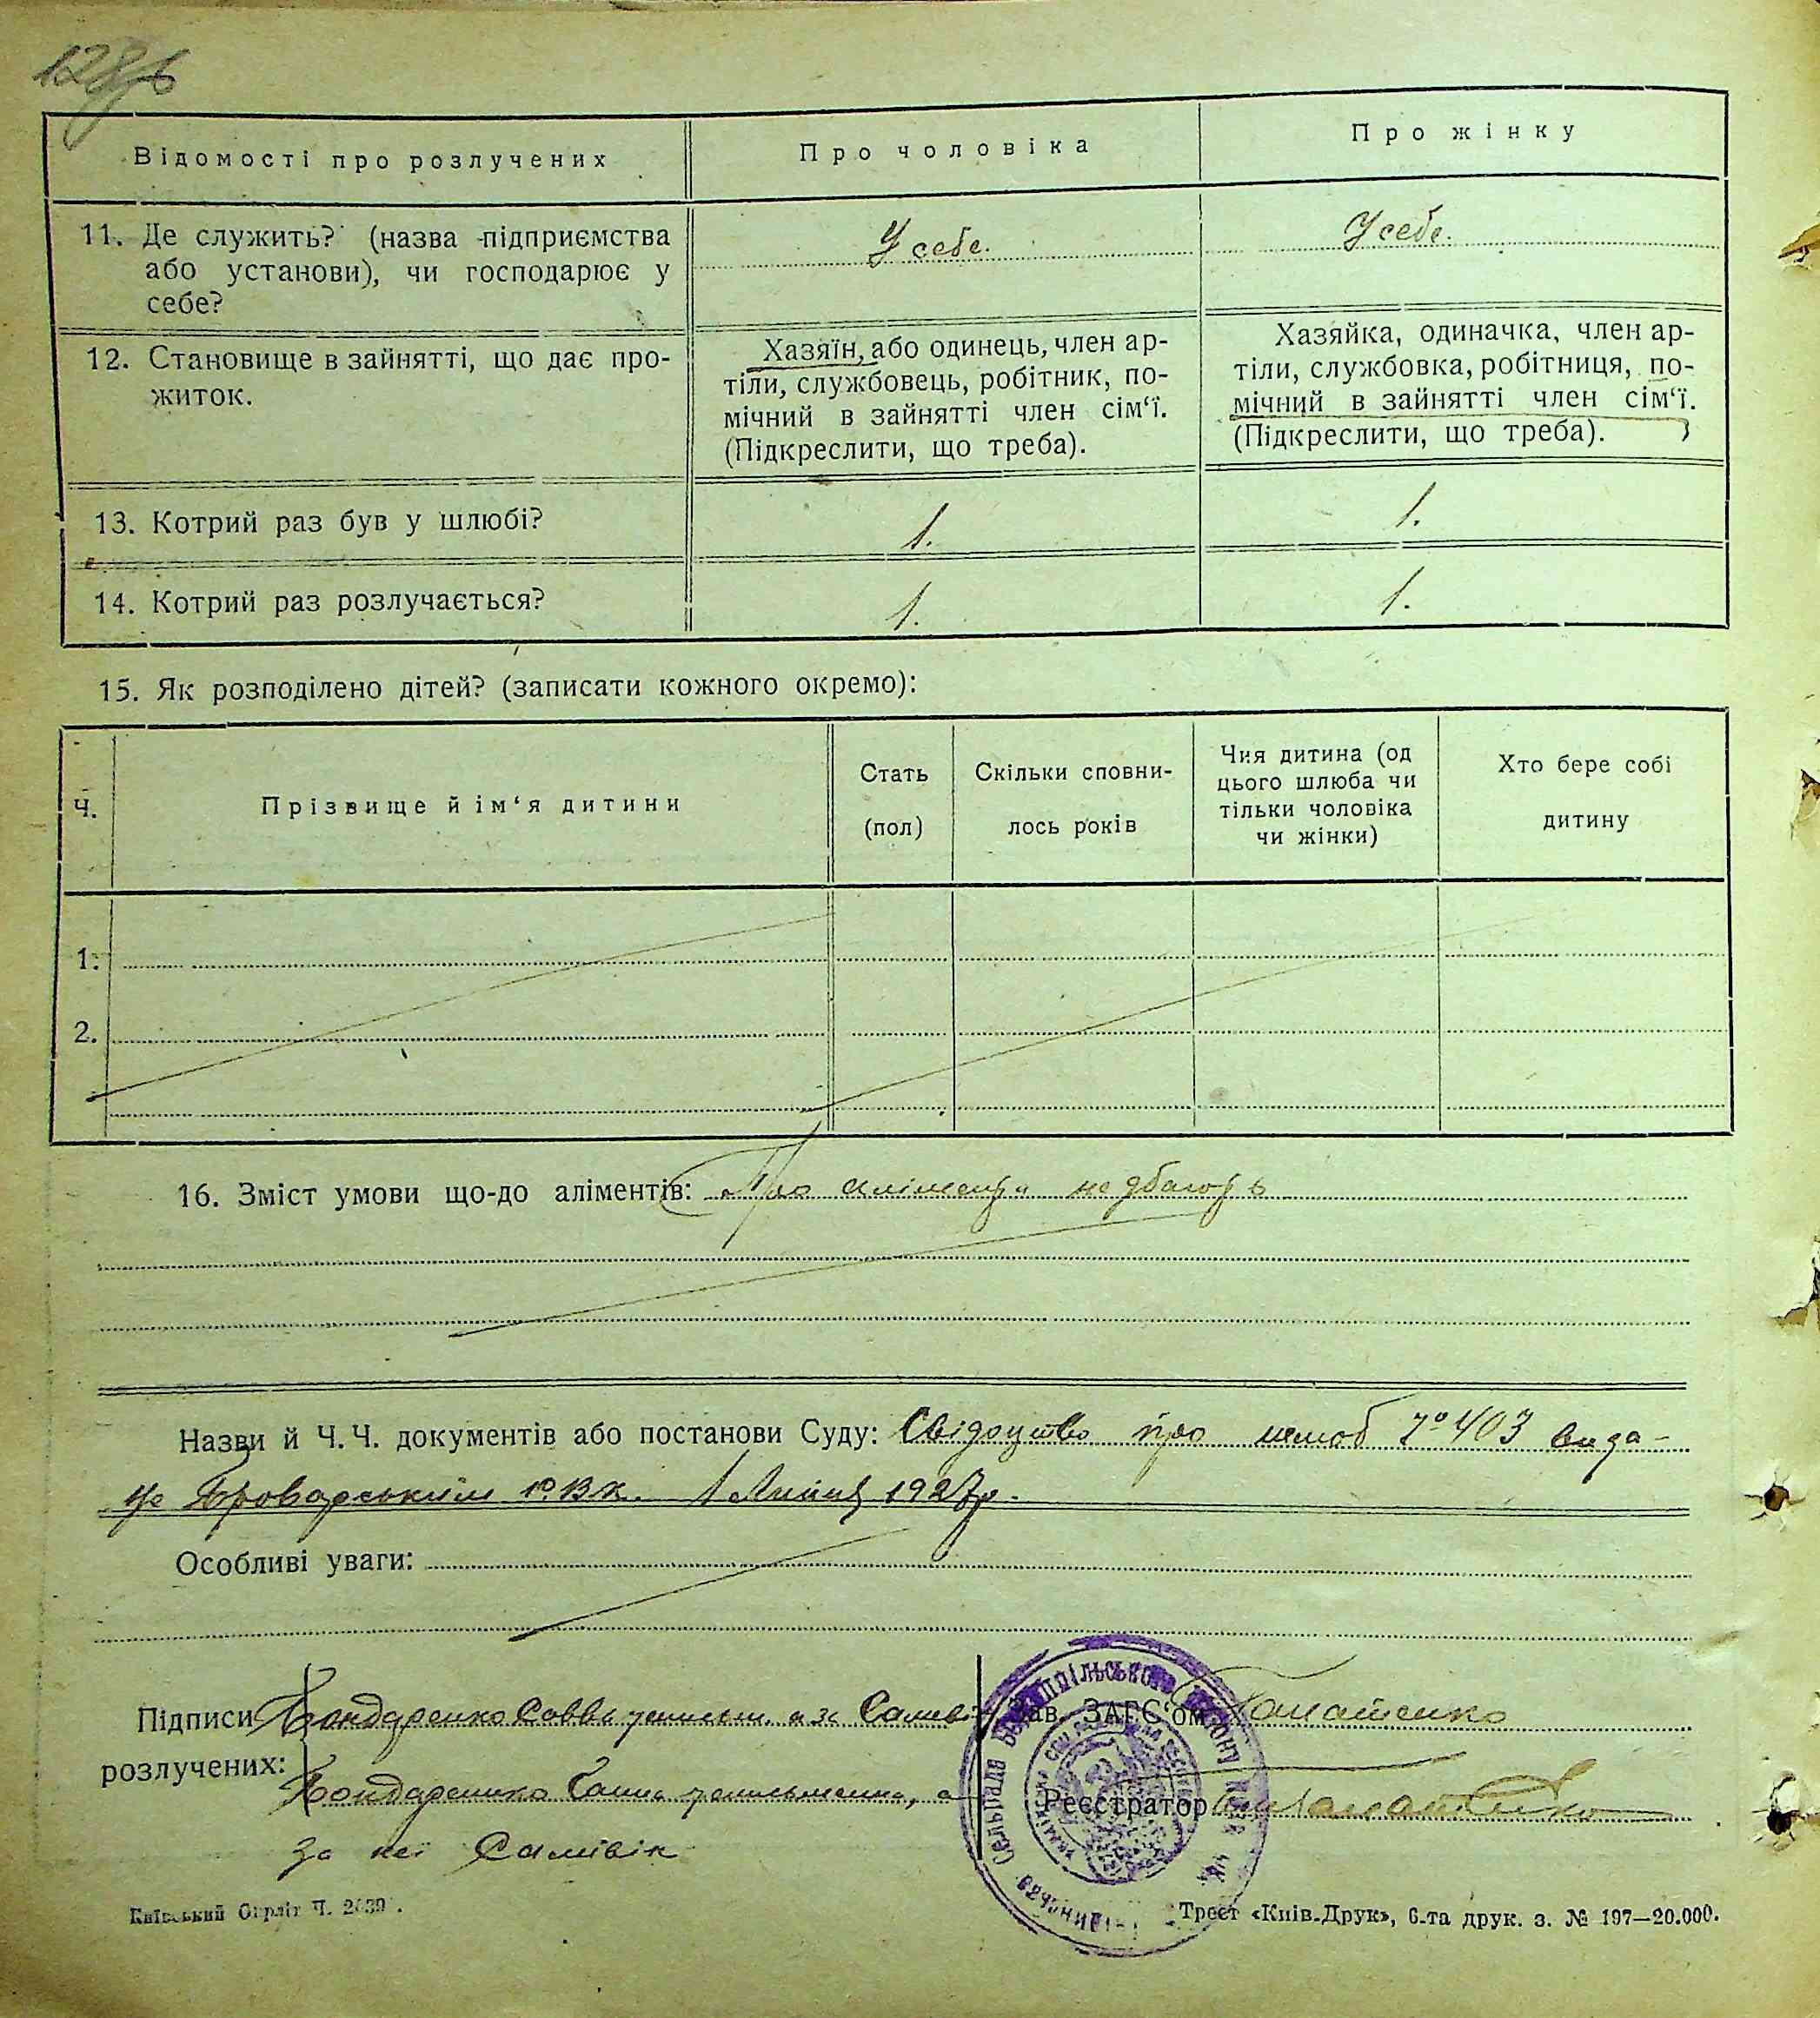 Відомості про розлучених
Про чоловіка
Про жінку
11. Де служить? (назва підприємства
або установи), чи господарює у
себе?
У себе.
У себе.
12. Становище в зайнятті, що дає про-
житок.
Хазяїн, або одинець, член ар-
тіли, службовець, робітник, по-
мічний в зайнятті член сім‘ї.
(Підкреслити, що треба).
Хазяйка, одиначка, член ар-
тіли, службовка, робітниця, по-
мічний в зайнятті член сім‘ї.
(Підкреслити, що треба).
13. Котрий раз був у шлюбі?
1.
1.
14. Котрий раз розлучається?
1.
1.
15. Як розподілено дітей? (записати кожного окремо):
Ч.
Прізвище й ім‘я дитини
Стать
(пол)
Скільки сповни-
лось років
Чия дитина (од
цього шлюба чи
тільки чоловіка
чи жінки)
Хто бере собі
дитину
1.
2.
16. Зміст умови що-до аліментів: Про аліменти не дбають
Назви й Ч. Ч. документів або постанови Суду: Свідоцтво про шлюб № 403 вида-
не Броварським Р.В.К. 1 Липня 1927р.
Особливі уваги:
Підписи
розлучених:
Бондаренко Савва а за
Бондаренко Ганна а
за неї
Зав. ЗАГС‘ом
Реєстратор
Трест «Київ-Друк», 6-та друк. з. № 197—20.000.